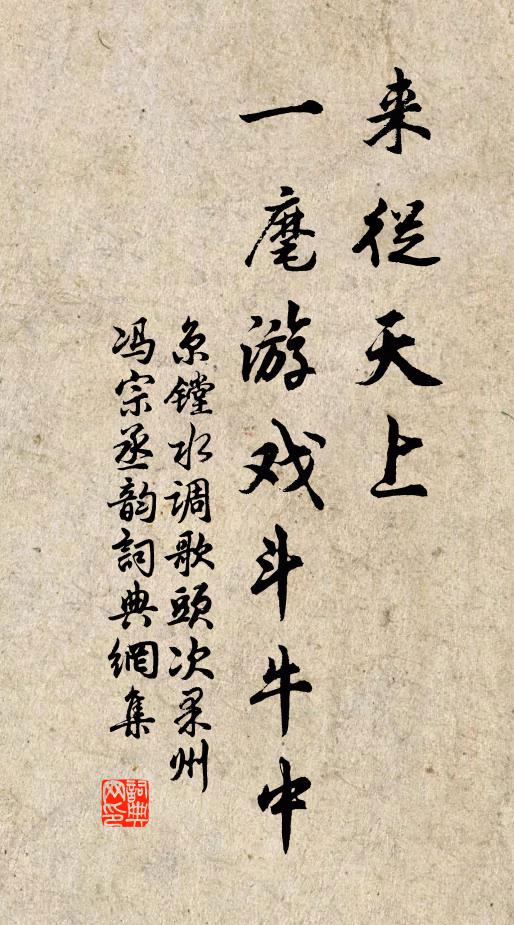 来從天上
一麾游戏斗牛中
京镗水调歌頭次果州
冯宗丞韵詞典網集
詞典
网印